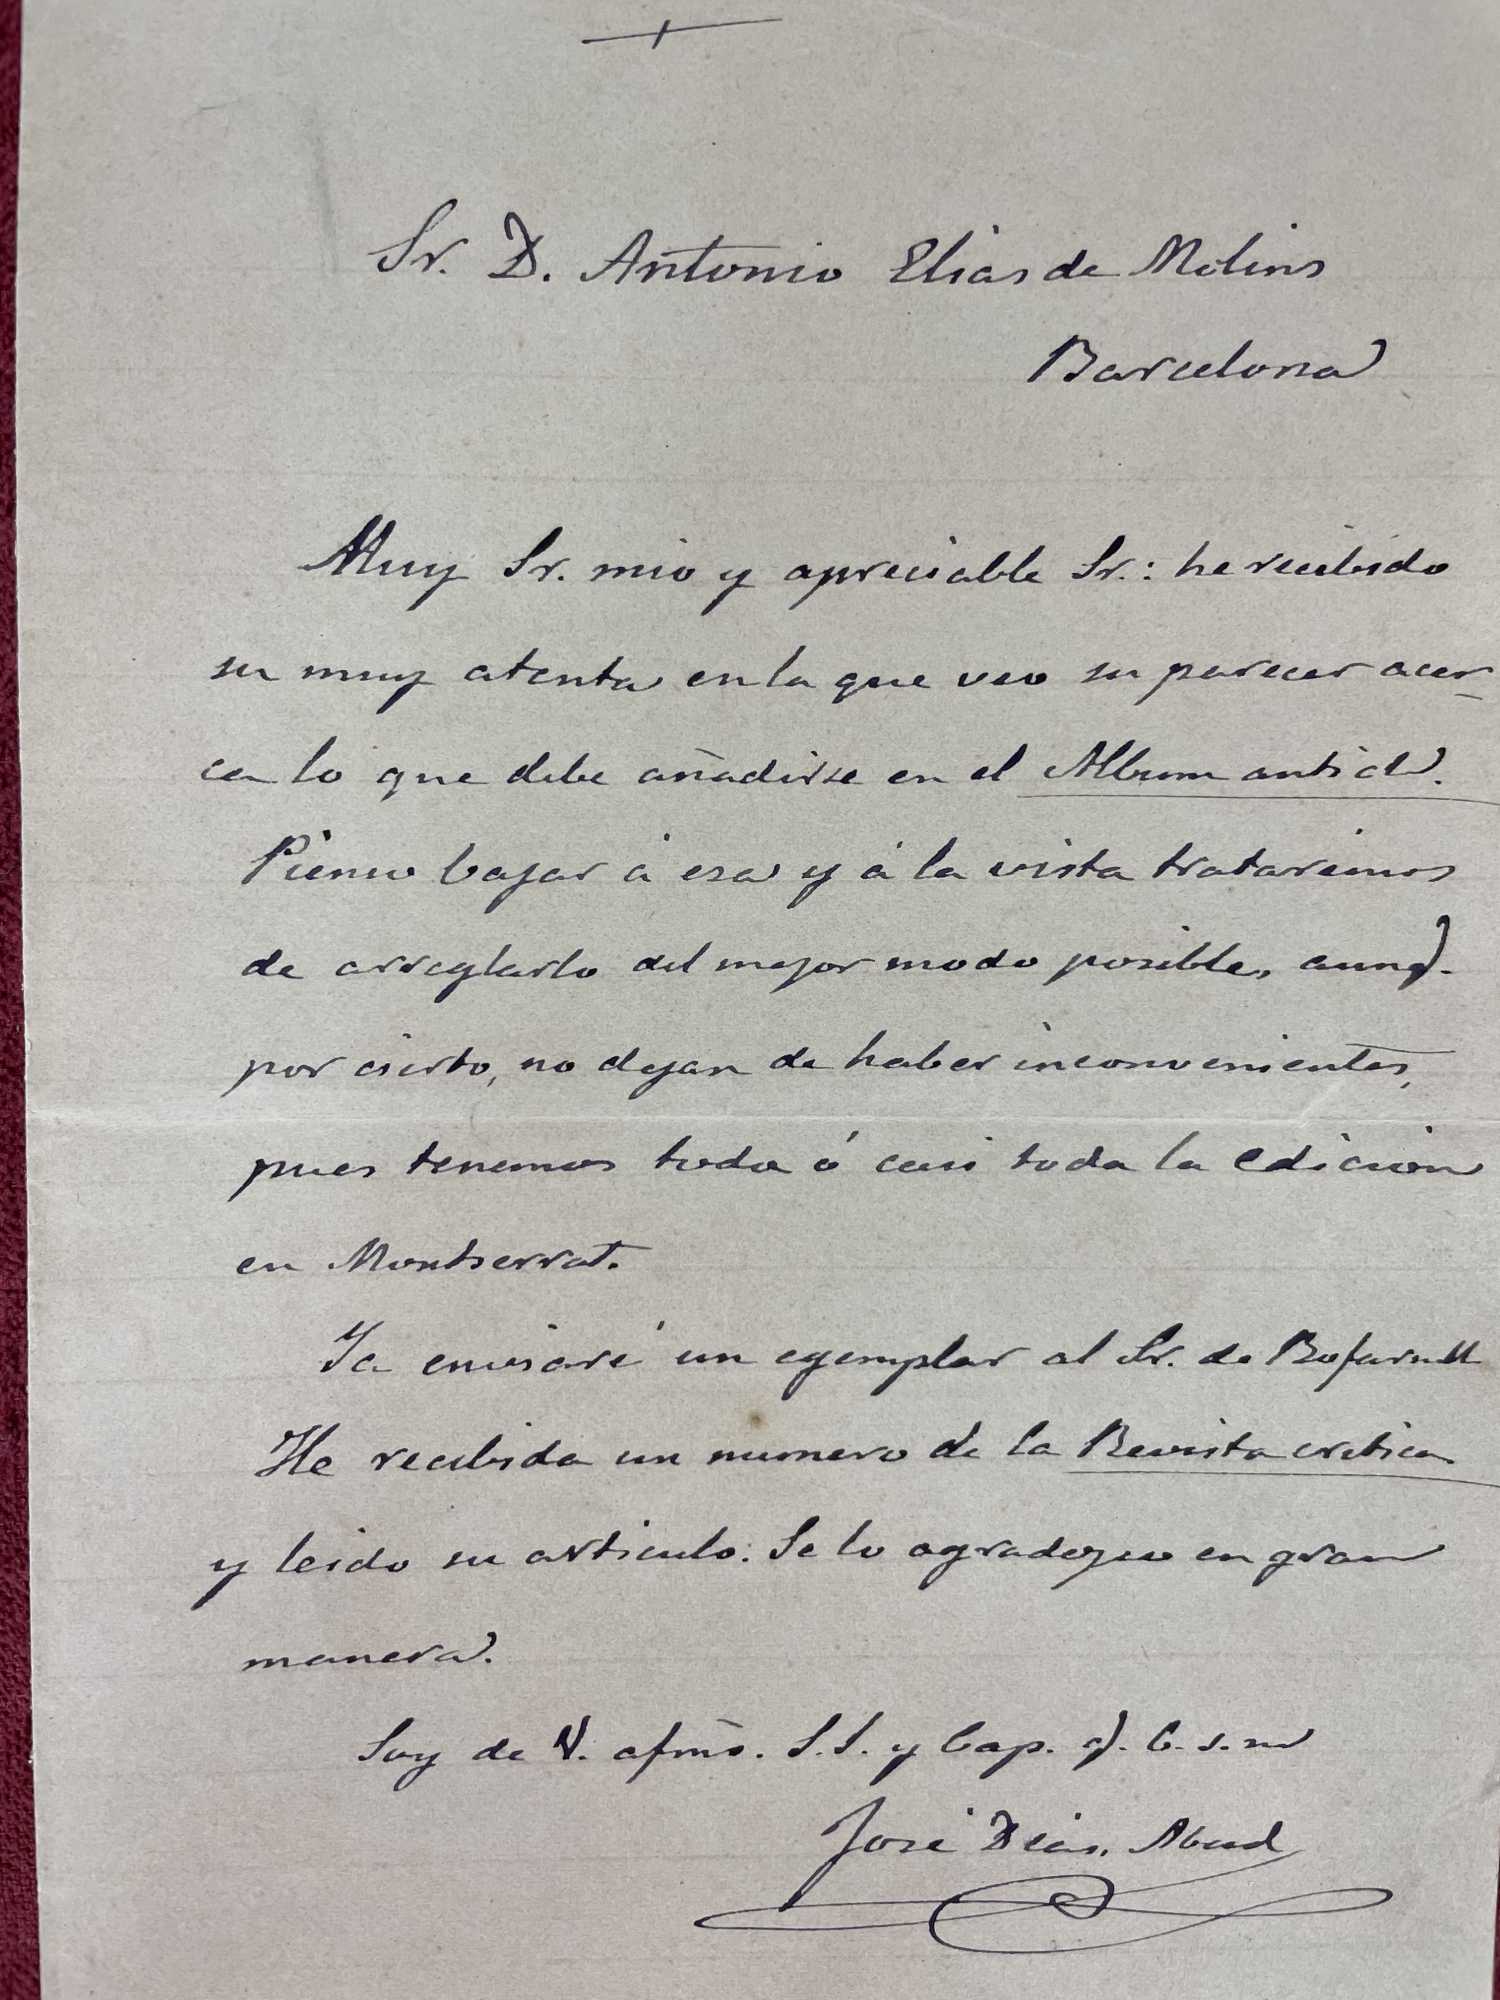 Sr. D. Antonio Elias de Molins
Barcelona
Muy Sr. mio y apreciable Sr.: he recibido
su muy atenta en la que veo su parecer acer-
ca lo que debe añadirse en el Album
Pienso bajar á esa y á la vista trataremos
de arreglarlo del mejor modo posible, aunq.
por cierto, no dejan de haber inconvenientes,
pues tenemos toda ó casi toda la edicion
en Montserrat.
Ya enviaré un ejemplar al Sr. de Bofarull
He recibido un numero de la Revista critica
y leido su articulo. Se lo agradezco en gran
manera.
Soy de V. afmo. S.S. y Cap. q. b. s. m
José Deás, Abad